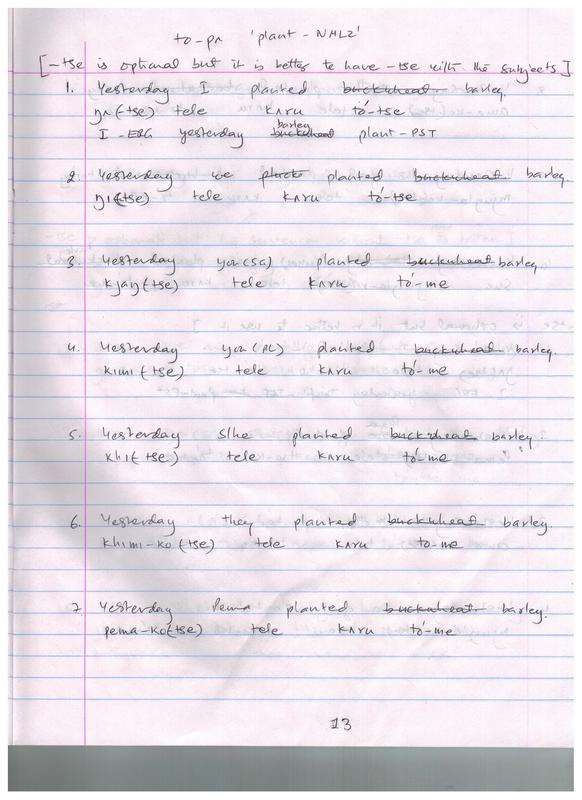 to-pʌ 'plant-NMLZ'
[-tse is optional but it is better to have -tse with the subjects]
1. Yesterday I planted buckwheat barley.
ŋʌ(-tse) tele kʌru tó-tse
barley
I-ERG yesterday buckwheat plant-PST
2. Yesterday we planted buckwheat barley
ŋı(-tse) tele kʌru tó-tse
3. Yesterday you(SG) planted buckwheat barley.
kjaŋ(-tse) tele kʌru tó-me
4. Yesterday you(PL) planted buckwheat barley.
kımı(-tse) tele kʌru tó-me
5. Yesterday s/he planted buckwheat barley.
khı(-tse) tele kʌru tó-me
6. Yesterday they planted buckwheat barley.
khımı-ko(-tse) tele kʌru to-me
7. Yesterday Pema planted buckwheat barley.
pema-ko(-tse) tele kʌru tó-me
13